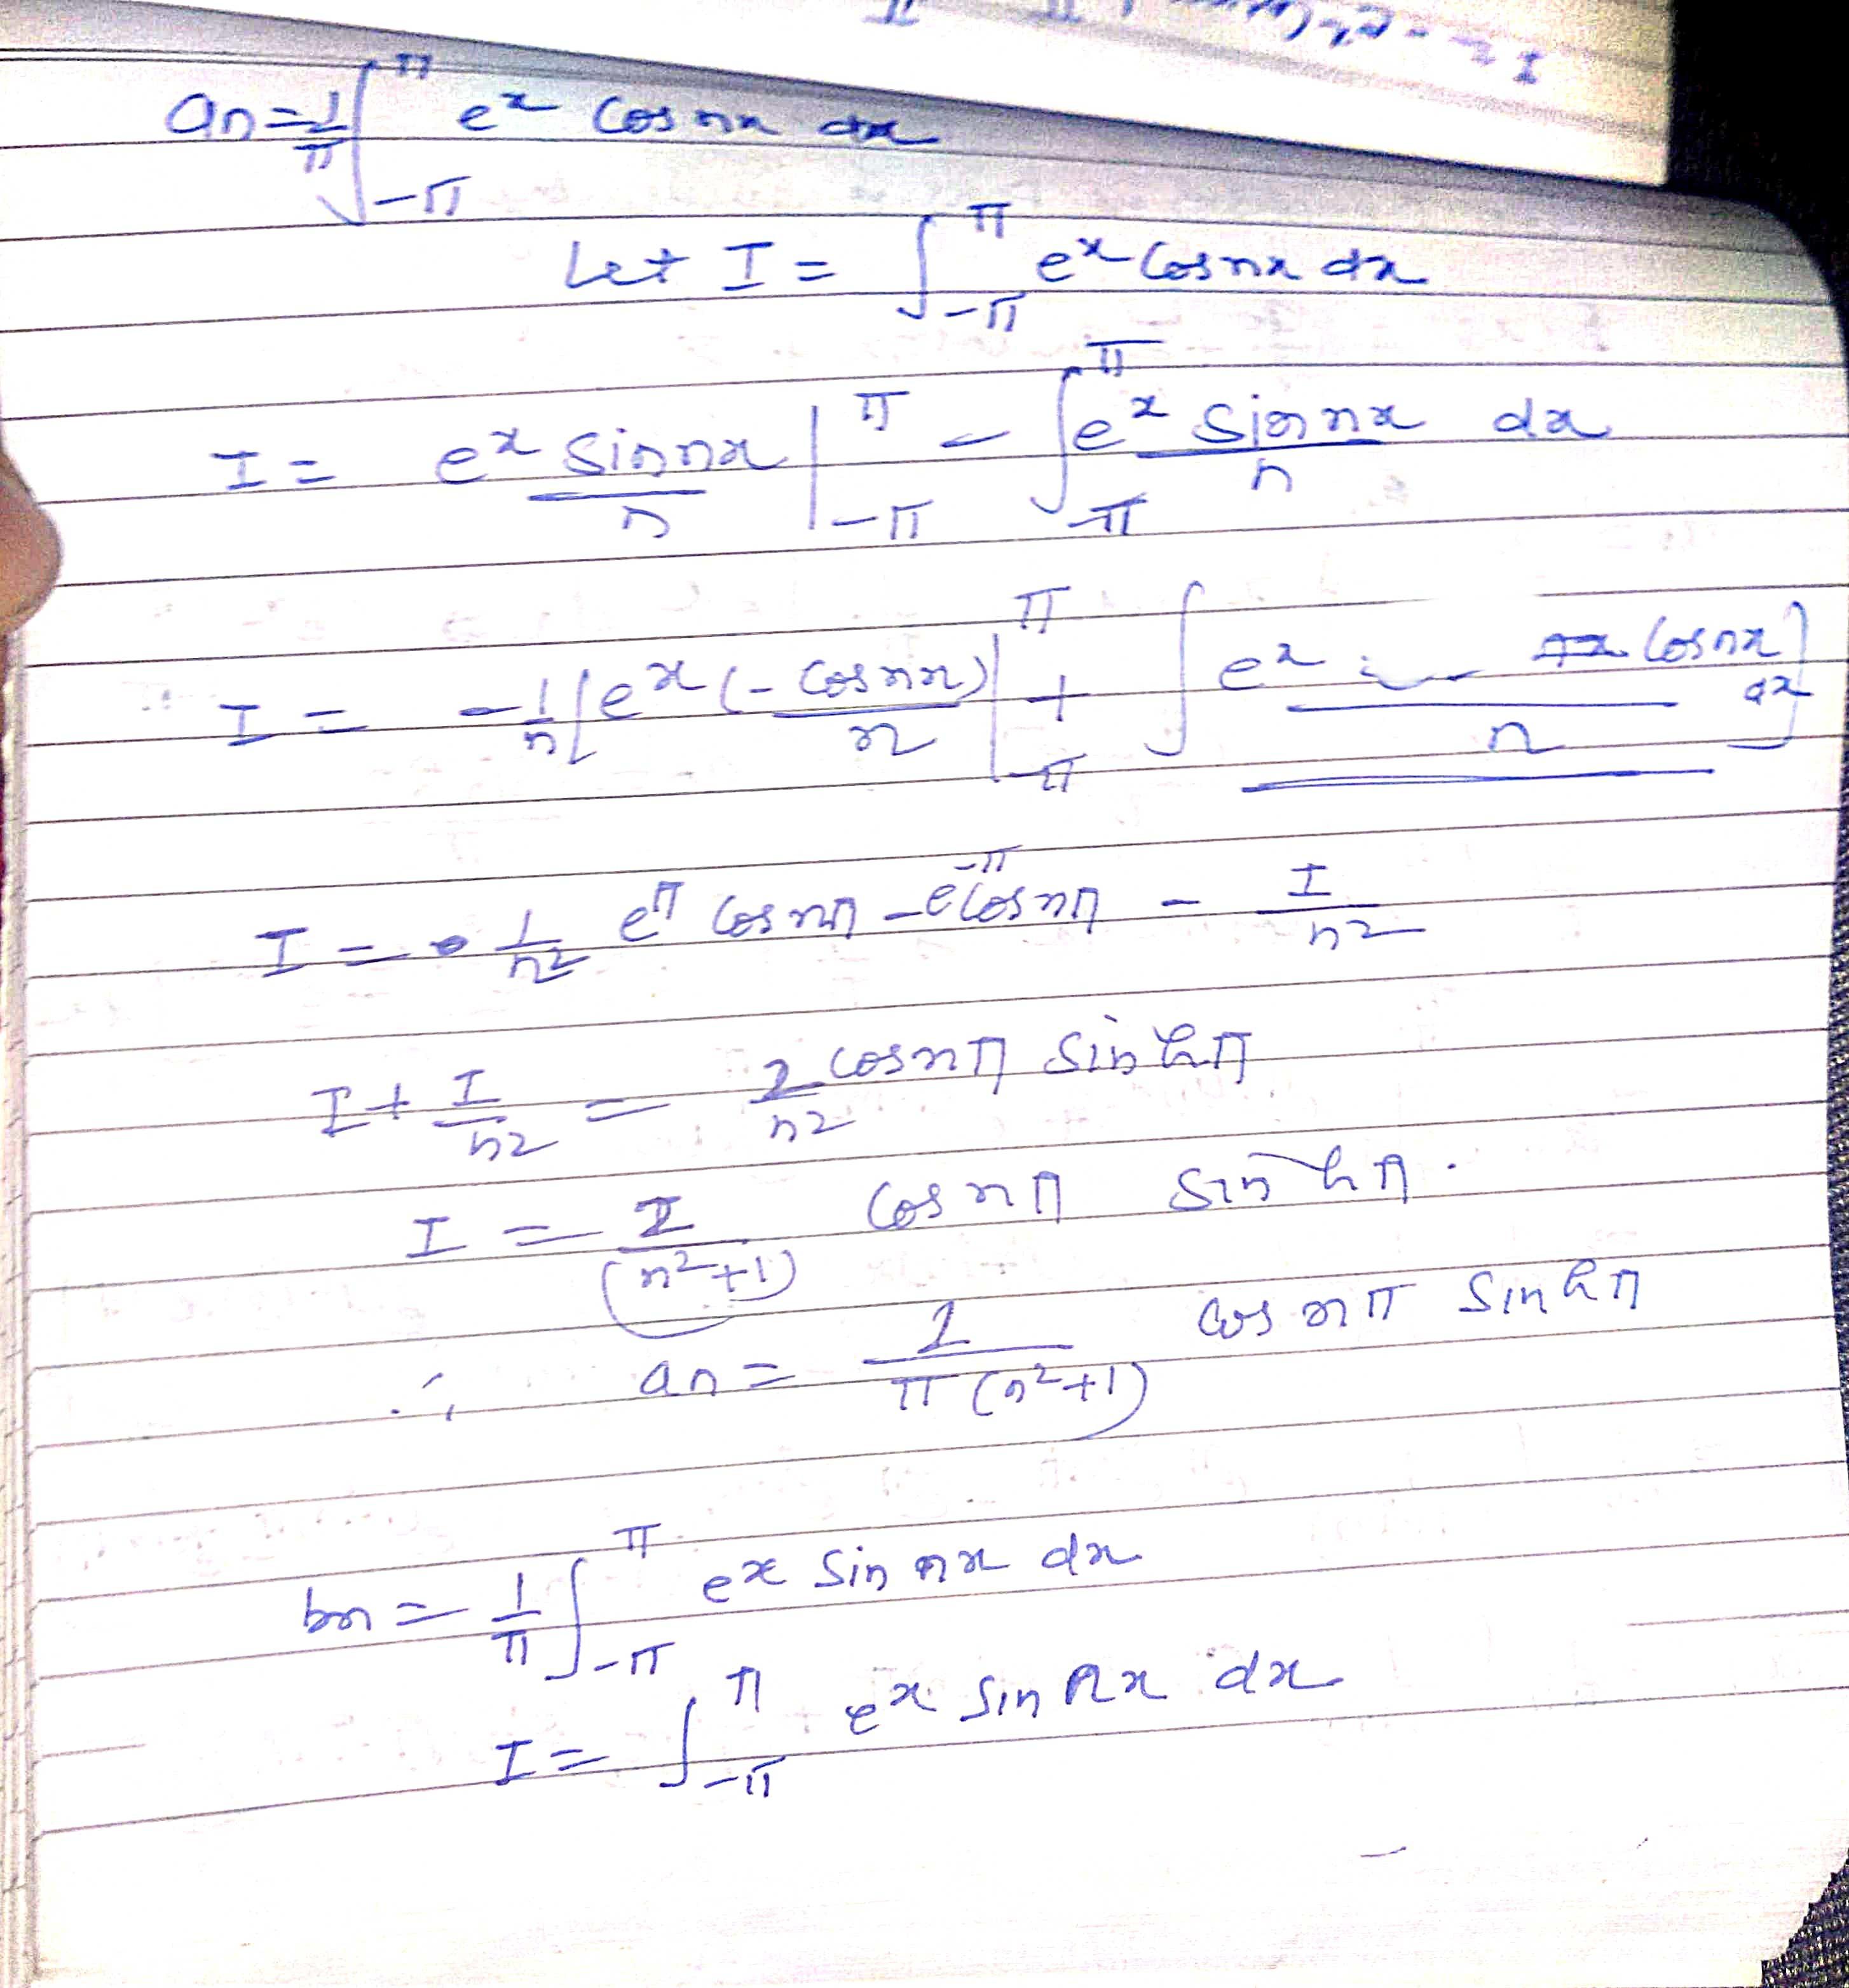 an = 1/π ∫_{-π}^{π} e^x cos nx dx
Let I = ∫_{-π}^{π} e^x cos nx dx
I = e^x sin nx/n |_{-π}^{π} - ∫_{-π}^{π} e^x sin nx/n dx
I = -1/n [e^x (-cos nx)/n |_{-π}^{π} + ∫ e^x cos nx/n dx]
I = 1/n² e^π cos nπ - e^{-π} cos nπ - I/n²
I + I/n² = 2/n² cos nπ sin hπ
I = 2/(n²+1) cos nπ sin hπ.
∴ an = 2/π(n²+1) cos nπ sin hπ
bn = 1/π ∫_{-π}^{π} e^x sin nx dx
I = ∫_{-π}^{π} e^x sin nx dx